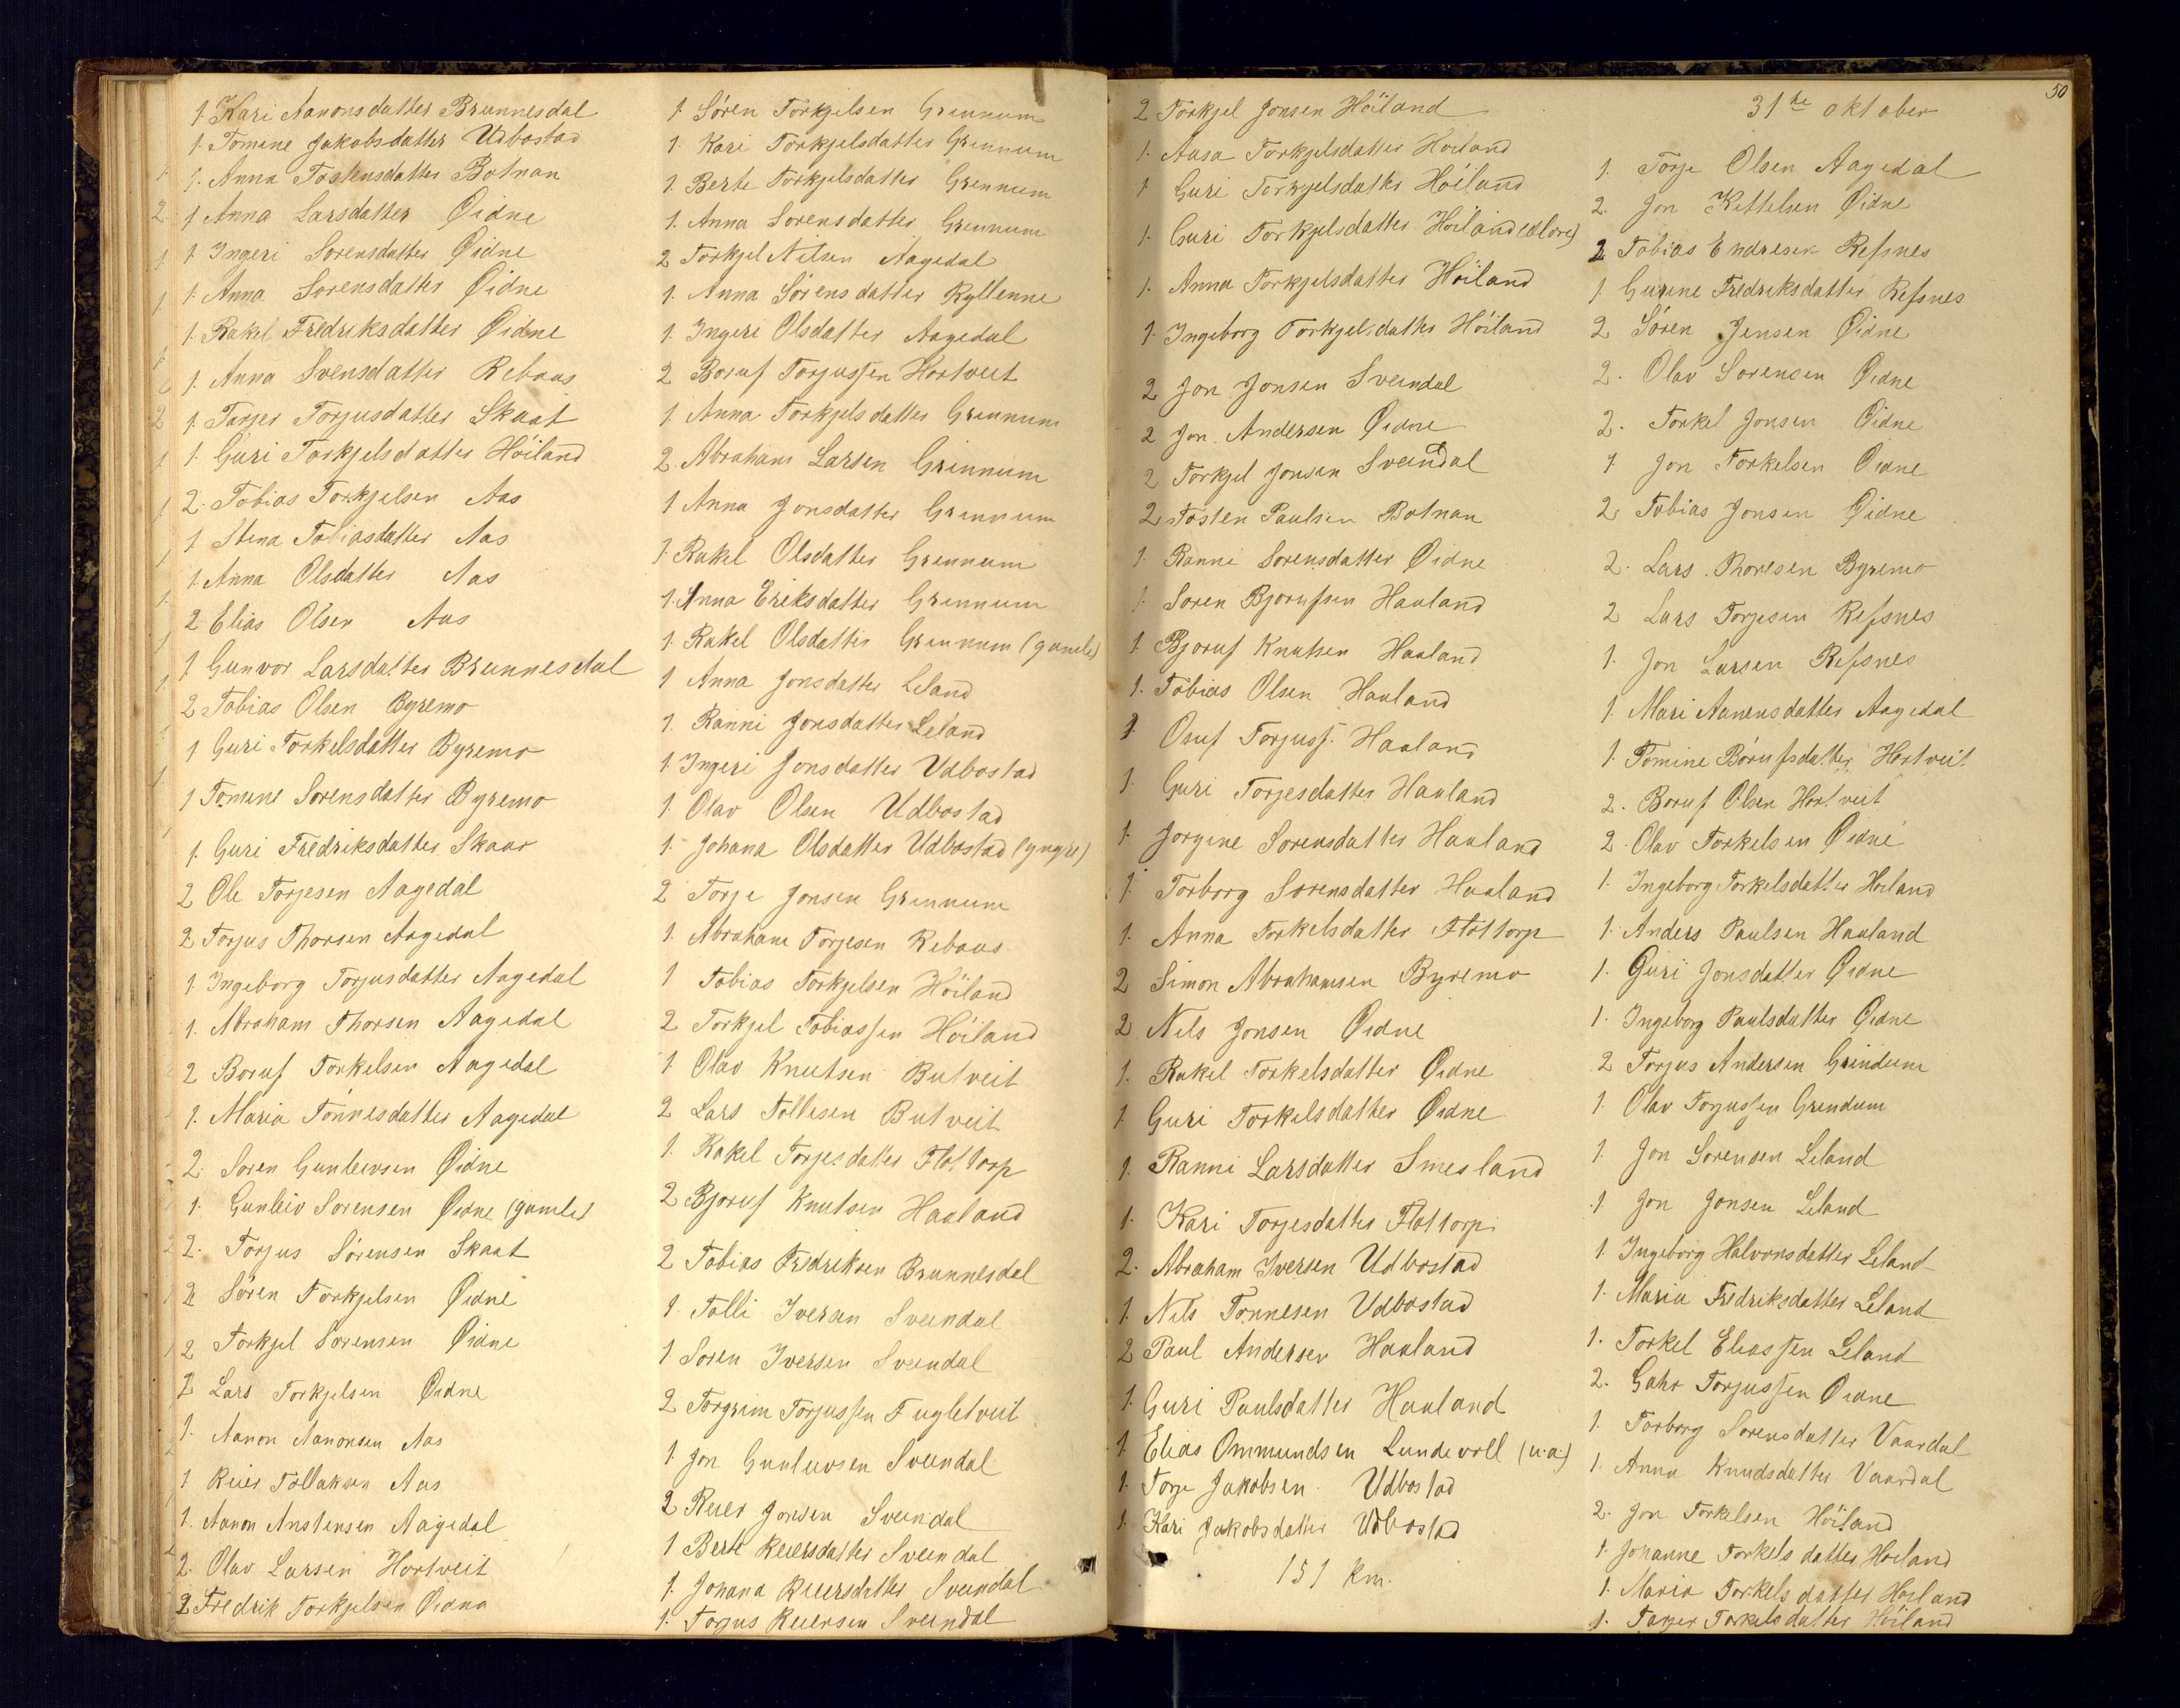 1. Kari Aanonsdatter Brunnesdal
1. Tomine Jakobsdatter Udbostad
1. Anna Tostensdatter Botnan
1 Anna Larsdatter Øidne
1 Ingeri Sørensdatter Øidne
1. Anna Sørensdatter Øidne
1. Rakel Fredriksdatter Øidne
1. Anna Svensdatter Rebaas
1. Tarjer Torjusdatter Skaat
1. Guri Torkjelsdatter Höiland
2. Tobias Torkjelsen Aas
1 Stena Tobiasdatter Aas
1. Anna Olsdatter Aas
2 Elias Olsen Aas
1 Gunvor Larsdatter Brunnesdal
2 Tobias Olsen Byremo
1 Guri Torkelsdatter Byremo
1 Tomine Sorensdatter Byremo
1. Guri Fredriksdatter Skaar
2 Ole Torjesen Aagedal
2 Torjus Thorsen Aagedal
1 Ingeborg Torjusdatter Aagedal
1. Abraham Thorsen Aagedal
2 Boruf Torkelsen Aagedal
1. Maria Tönnesdatter Aagedal
2. Soren Gunleivsen Øidne
1. Gunleiv Sorensen Øidne (gamle)
2. Torjus Sörensen Skaat
2 Sören Torkjelsen Øidne
2 Torkjel Sorensen Øidne
2 Lars Torkjelsen Øidne
1. Aanon Aanonsen Aas
1 Reier Tollaksen Aas
1. Aanon Anstensen Aagedal
2. Olav Larsen Hortveit
2 Fredrik Torkjelsen Øidna
1. Sören Torkjelsen Grennum
1. Kari Torkjelsdatter Grennum
1. Berte Torkjelsdatter Grennum
1. Anna Sorensdatter Grennum
2 Torkjel Nilsen Aagedal
1. Anna Sörensdatter Kyllenne
1. Ingeri Olsdatter Aagedal
2 Boruf Torjussen Hortveit
1 Anna Torkjelsdatter Grennum
2. Abraham Larsen Grinnum
1 Anna Jonsdatter Grennum
1. Rakel Olsdatter Grennum
1. Anna Eriksdatter Grennum
1. Rakel Olsdatter Grennum (gamle)
1 Anna Jonsdatter Leland
1. Ranni Jonsdatter Leland
1. Ingeri Jonsdatter Udbostad
1. Olav Olsen Udbostad
1. Johana Olsdatter Udbostad (yngre)
2 Torje Jonsen Grennum
1. Abraham Torjesen Rebaas
1 Tobias Torkjelsen Höiland
2 Torkjel Tobiassen Höiland
1 Olav Knutsen Butveit
2 Lars Tollesen Butveit
1. Rakel Torjesdatter Flottorp
2 Bjoruf Knutsen Haaland
2 Tobias Fredriksen Brunnesdal
1. Tolli Iversen Sveindal
1 Soren Iversen Sveindal
2 Torgrim Torjussen Fugletveit
1. Jon Gunleivsen Sveindal
2 Reier Jonsen Sveindal
1 Berte Reiersdatter Sveindal
1. Johana Reiersdatter Sveindal
1. Torjus Reiersen Sveindal
2 Torkjel Jonsen Höiland
1. Aasa Torkjelsdatter Hoiland
1 Guri Torkjelsdatter Höiland
1. Guri Torkjelsdatter Höiland (eldre)
1. Anna Torkjelsdatter Höiland
1 Ingeborg Torkjelsdatter Höiland
2 Jon Jonsen Sveindal
2 Jon Andersen Øidne
2 Torkjel Jonsen Sveindal
2 Tosten Paulsen Botnan
1. Ranni Sorensdatter Øidne
1. Soren Bjorufsen Haaland
1 Bjoruf Knutsen Haaland
1. Tobias Olsen Haaland
1 Osuf Torjuss. Haaland
1. Guri Torjesdatter Haaland
1. Jorgine Sorensdatter Haaland
1. Torborg Sorensdatter Haaland
1. Anna Torkelsdatter Flottorp
2 Simon Abrahamsen Byremo
2 Nils Jonsen Øidne
1. Rakel Torkelsdatter Øidne
1 Guri Torkelsdatter Øidne
1. Ranni Larsdatter Smesland
1. Kari Torjesdatter Flottorp
2. Abraham Iversen Udbostad
1. Nils Tonnesen Udbostad
2 Paul Andersen Haaland
1. Guri Paulsdatter Haaland
1 Elias Ommundsen Lundevoll (u.a.)
1. Torje Jakobsen. Udbostad
1. Kari Jakobsdatter Udbostad
151 Km.
50
31te oktober
1. Torje Olsen Aagedal
2. Jon Kittelsen Øidne
2 Tobias Endresen Refsnes
1 Gurine Fredriksdatter Refsnes
2 Sören Jensen Øidne
2. Olav Sorensen Øidne
2. Torkel Jonsen Øidne
1 Jon Torkelsen Øidne
2. Tobias Jonsen Øidne
2. Lars Thoresen Byremo
2 Lars Torjesen Refsnes
1. Jon Larsen Refsnes
1. Mari Aanensdatter Aagedal
1. Tomine Börufsdatter Hortveit
2. Boruf Olsen Hortveit
2. Olav Torkelsen Øidne
1. Ingeborg Torkelsdatter Hoiland
1. Anders Paulsen Haaland
1. Guri Jonsdatter Øidne
1. Ingeborg Paulsdatter Øidne
2 Torjus Andersen Grindum
1. Olav Torjussen Grendum
1. Jon Sorensen Leland
1 Jon Jonsen Leland
1. Ingeborg Halvorsdatter Leland
1. Maria Fredriksdatter Leland
1. Torkel Eliassen Leland
2. Gahr Torjussen Øidne
1. Torborg Sorensdatter Vaardal
1. Anna Knudsdatter Vaardal
2. Jon Torkelsen Höiland
1. Johanne Torkelsdatter Hoiland
1. Maria Torkelsdatter Hoiland
1. Tarjer Torkelsdatter Höiland